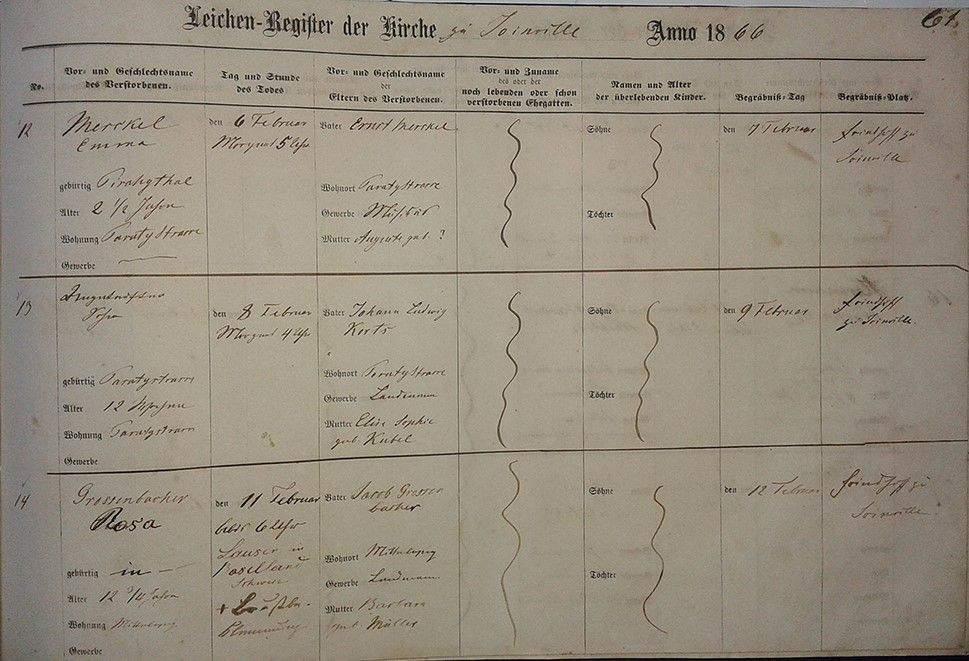 Leichen-Register der Kirche zu Joinville Anno 1866 61.
No.
Vor- und Geschlechtsname
des Verstorbenen.
Tag und Stunde
des Todes
Vor- und Geschlechtsname
der
Eltern des Verstorbenen.
Vor- und Zuname
des oder der
noch lebenden oder schon
verstorbenen Ehegatten.
Namen und Alter
der überlebenden Kinder.
Begräbniß-Tag
Begräbniß-Platz.
12
Merckel
Emma
gebürtig
Alter 2 1/2
Wohnung
Gewerbe
den 6 Februar
Morgens 5 Uhr
Vater Ernst Merckel
Wohnort
Gewerbe
Mutter Auguste geb. ?
Söhne
Töchter
den 7 Februar
Friedhof zu
Joinville
13
gebürtig
Alter 12
Wohnung
Gewerbe
den 8 Februar
Morgens 4 Uhr
Vater Johann Ludwig
Korts
Wohnort
Gewerbe Landmann
Mutter Elise Sophie
geb. Kubel
Söhne
Töchter
den 9 Februar
Friedhof
zu Joinville.
14
Grossenbacher
Rosa
gebürtig in
Alter 12 3/4
Wohnung
Gewerbe
den 11 Februar
6 Uhr
in
Schweiz
Vater Jacob Grossen
bacher
Wohnort
Gewerbe Landmann
Mutter Barbara
geb. Müller
Söhne
Töchter
den 12 Februar
Friedhof zu
Joinville.